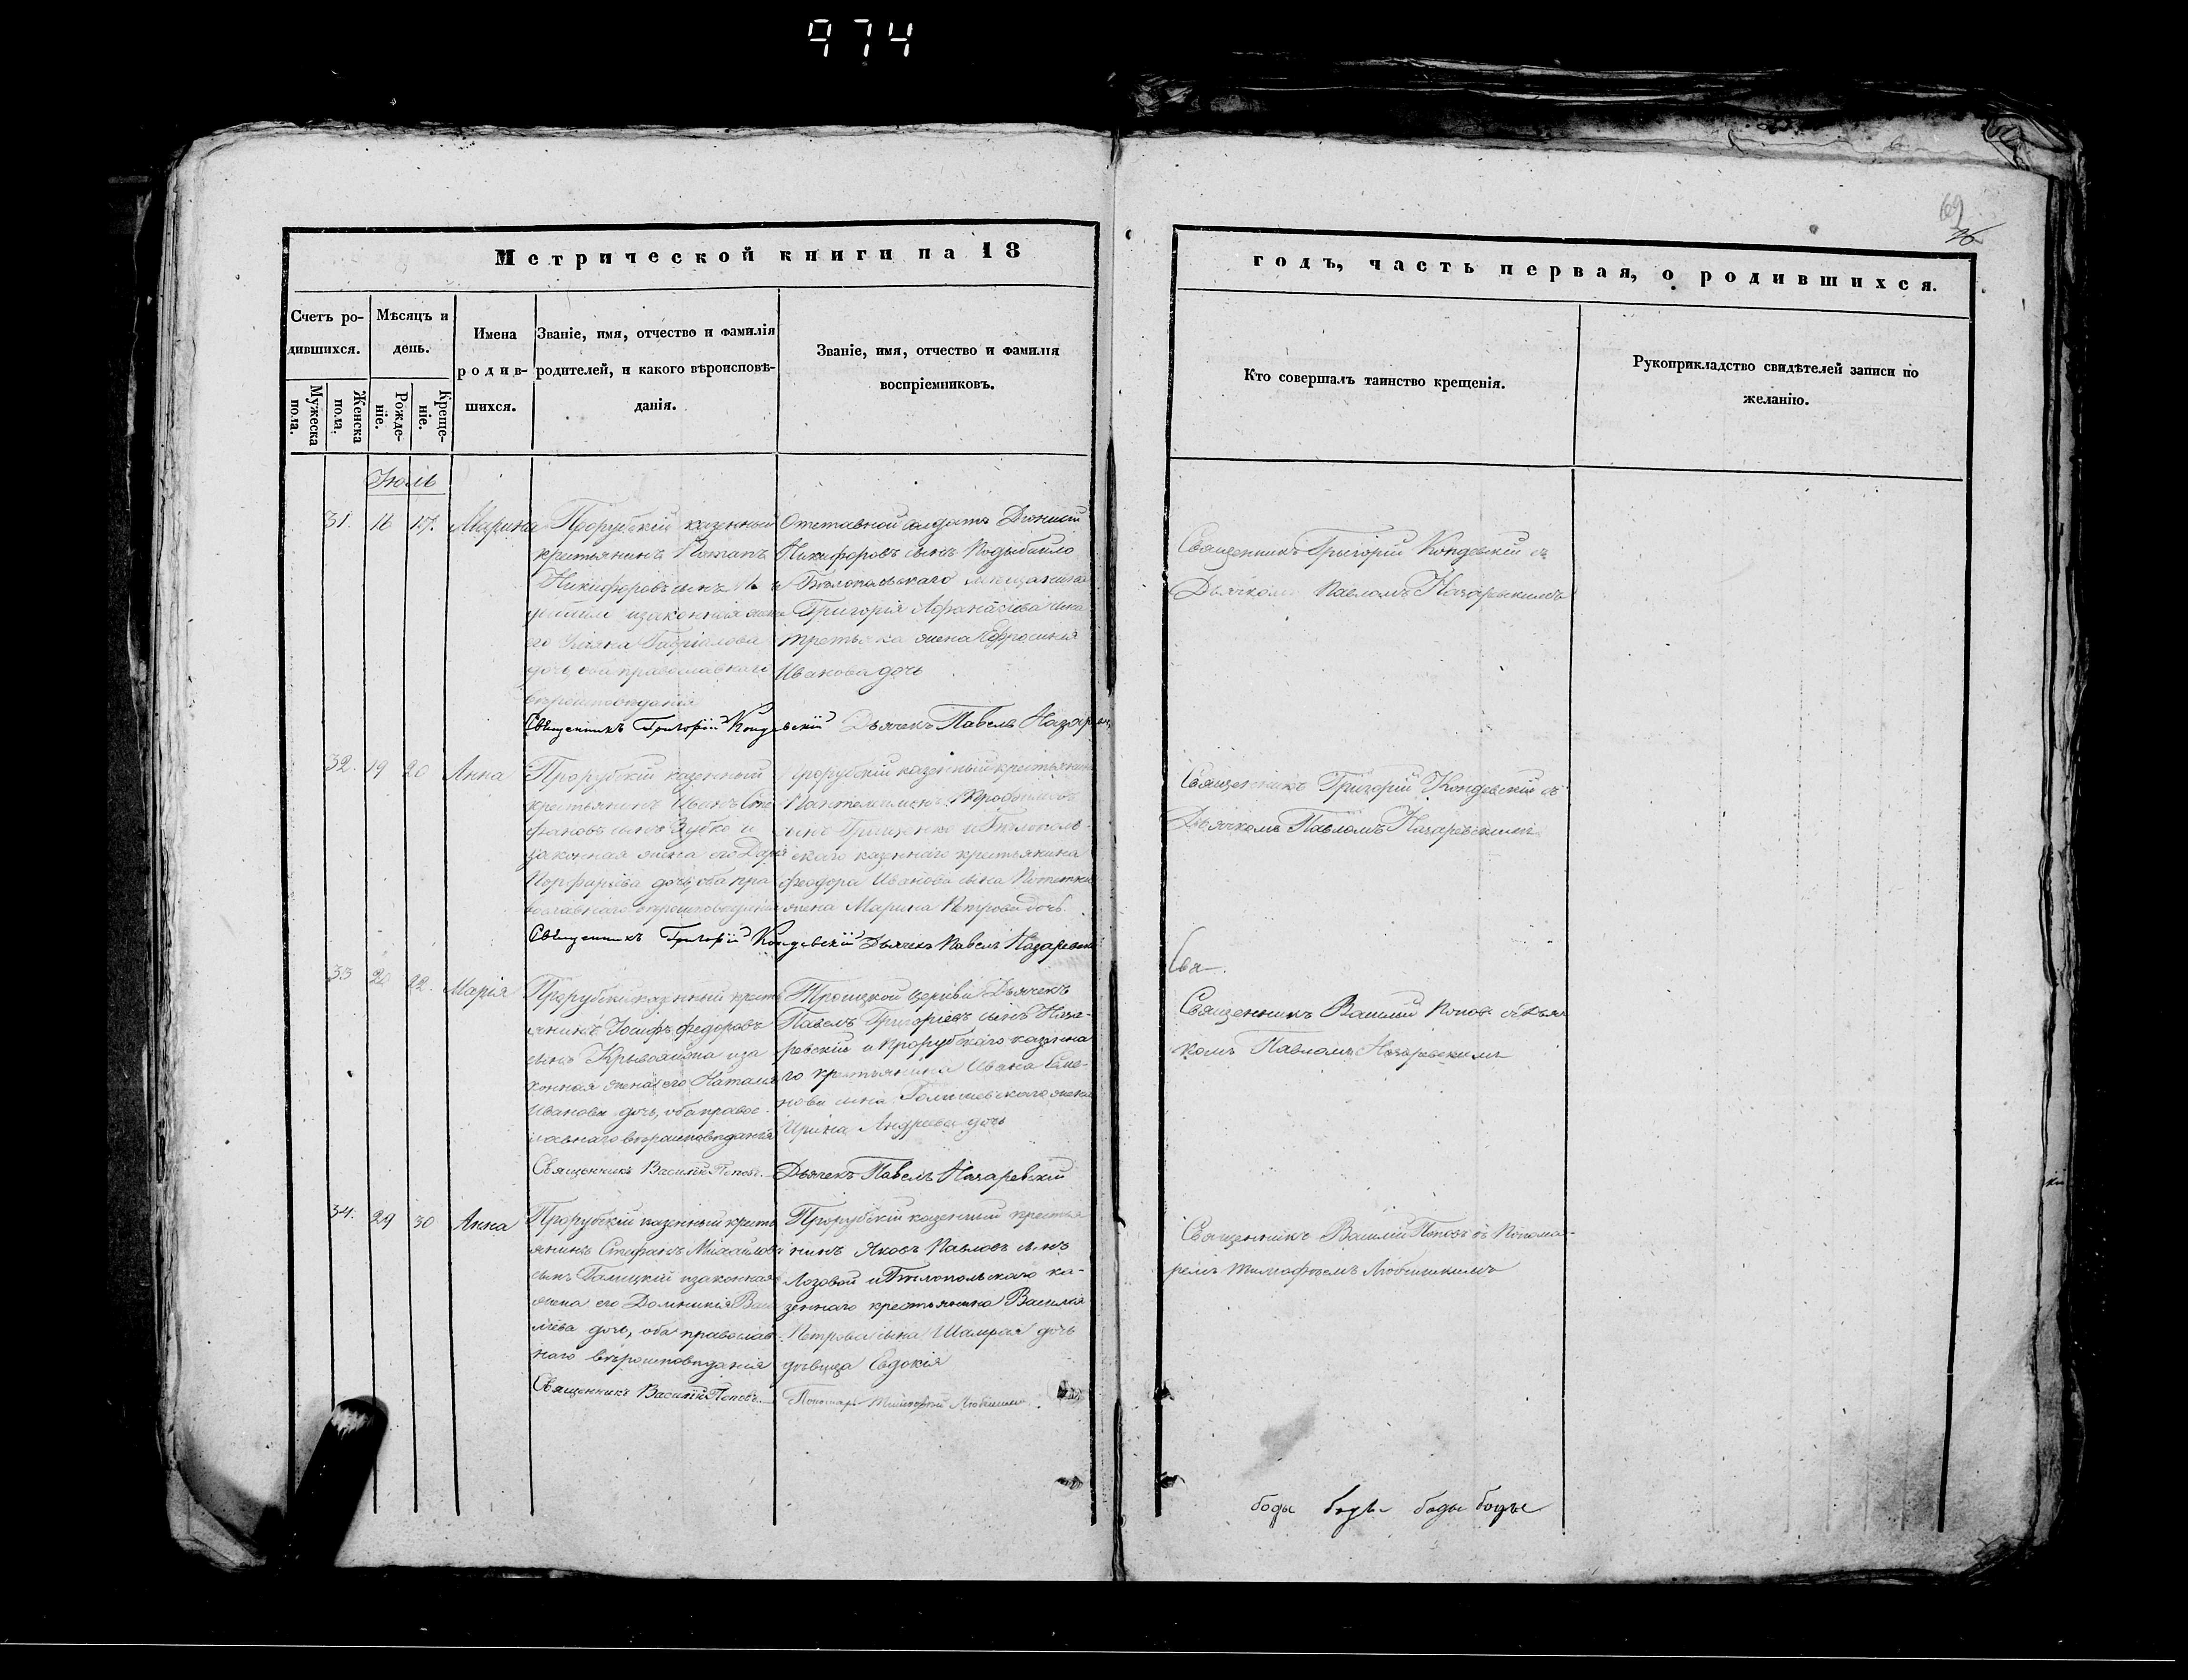 974
69
26
Метрической книги на 18
годъ, часть первая, о родившихся.
Счетъ ро-
дившихся.
Мужеска
пола.
Женска
пола.
Мѣсяцъ и
день.
Рожде-
ніе.
Креще-
ніе.
Имена
родив-
шихся.
Званіе, имя, отчество и фамилія
родителей, и какого вѣроисповѣ-
данія.
Званіе, имя, отчество и фамилія
воспріемниковъ.
Кто совершалъ таинство крещенія.
Рукоприкладство свидѣтелей записи по
желанію.
Июль
31. 16 17. Марина
Прорубскій казенный
крестьянинъ Романъ
Никифоровъ сынъ
изаконная жена
его Гавріилова
дочь, оба православнаго
вѣроисповѣданія
Отставной солдатъ Діонисій
Никифоровъ сынъ
и Бѣлопольскаго мѣщанина
Григорія Афанасіева сына
Третьяка жена Ефросинія
Иванова дочь
Священникъ Григорій Кондевскій с
Дьячкомъ Павломъ Назаревскимъ
Священникъ Григорій Кондевскій Дьячекъ Павелъ
32. 19 20 Анна
Прорубскій казенный
крестьянинъ Иванъ Сте
фановъ сынъ Зубко и
законная жена его Дарія
Порфирієва дочь, оба пра
вославнаго вѣроисповѣданія
Прорубскій казенный крестьянинъ
Пантелимонъ Трофимовъ
сынъ Гриценко и Бѣлополь-
скаго казеннаго крестьянина
Феодора Иванова сына
жена Марина Петрова дочь.
Священникъ Григорій Кондевскій съ
Дьячкомъ Павломъ Назаревскимъ
Священникъ Григорій Кондевскій Дьячекъ Павелъ Назаревскій
33 20 22. Марія
Прорубскій казенный кресть
янинъ Іосифъ Федоровъ
сынъ иза
конная жена его Наталія
Иванова дочь, оба правос
лавнаго вѣроисповѣданія
Троицкой церкви Дьячекъ
Павелъ Григоріевъ сынъ Наза-
ревскій и Прорубскаго казенна
го крестьянина Ивана Семе-
нова сына жена
Ирина Андреева дочь
Свя-
Священникъ Василій Поповъ съ Дьяч
комъ Павломъ Назаревскимъ
Священникъ Василій Поповъ. Дьячекъ Павелъ Назаревскій
34. 29 30 Анна
Прорубскій казенный кресть
янинъ Стефанъ Михайловъ
сынъ Галицкій изаконная
жена его Домникія Васи
ліева дочь, оба православ
наго вѣроисповѣданія
Прорубскій казенный крестья
нинъ Яковъ Павловъ сынъ
Лозовой и Бѣлопольскаго ка-
зеннаго крестьянина Василія
Петрова сына Шамрая дочь
дѣвица Евдокія
Священникъ Василій Поповъ съ Понома-
ремъ Тимофѣемъ Любицкимъ
Священникъ Василій Поповъ. Пономарь Тимофей
боды боды боды боды